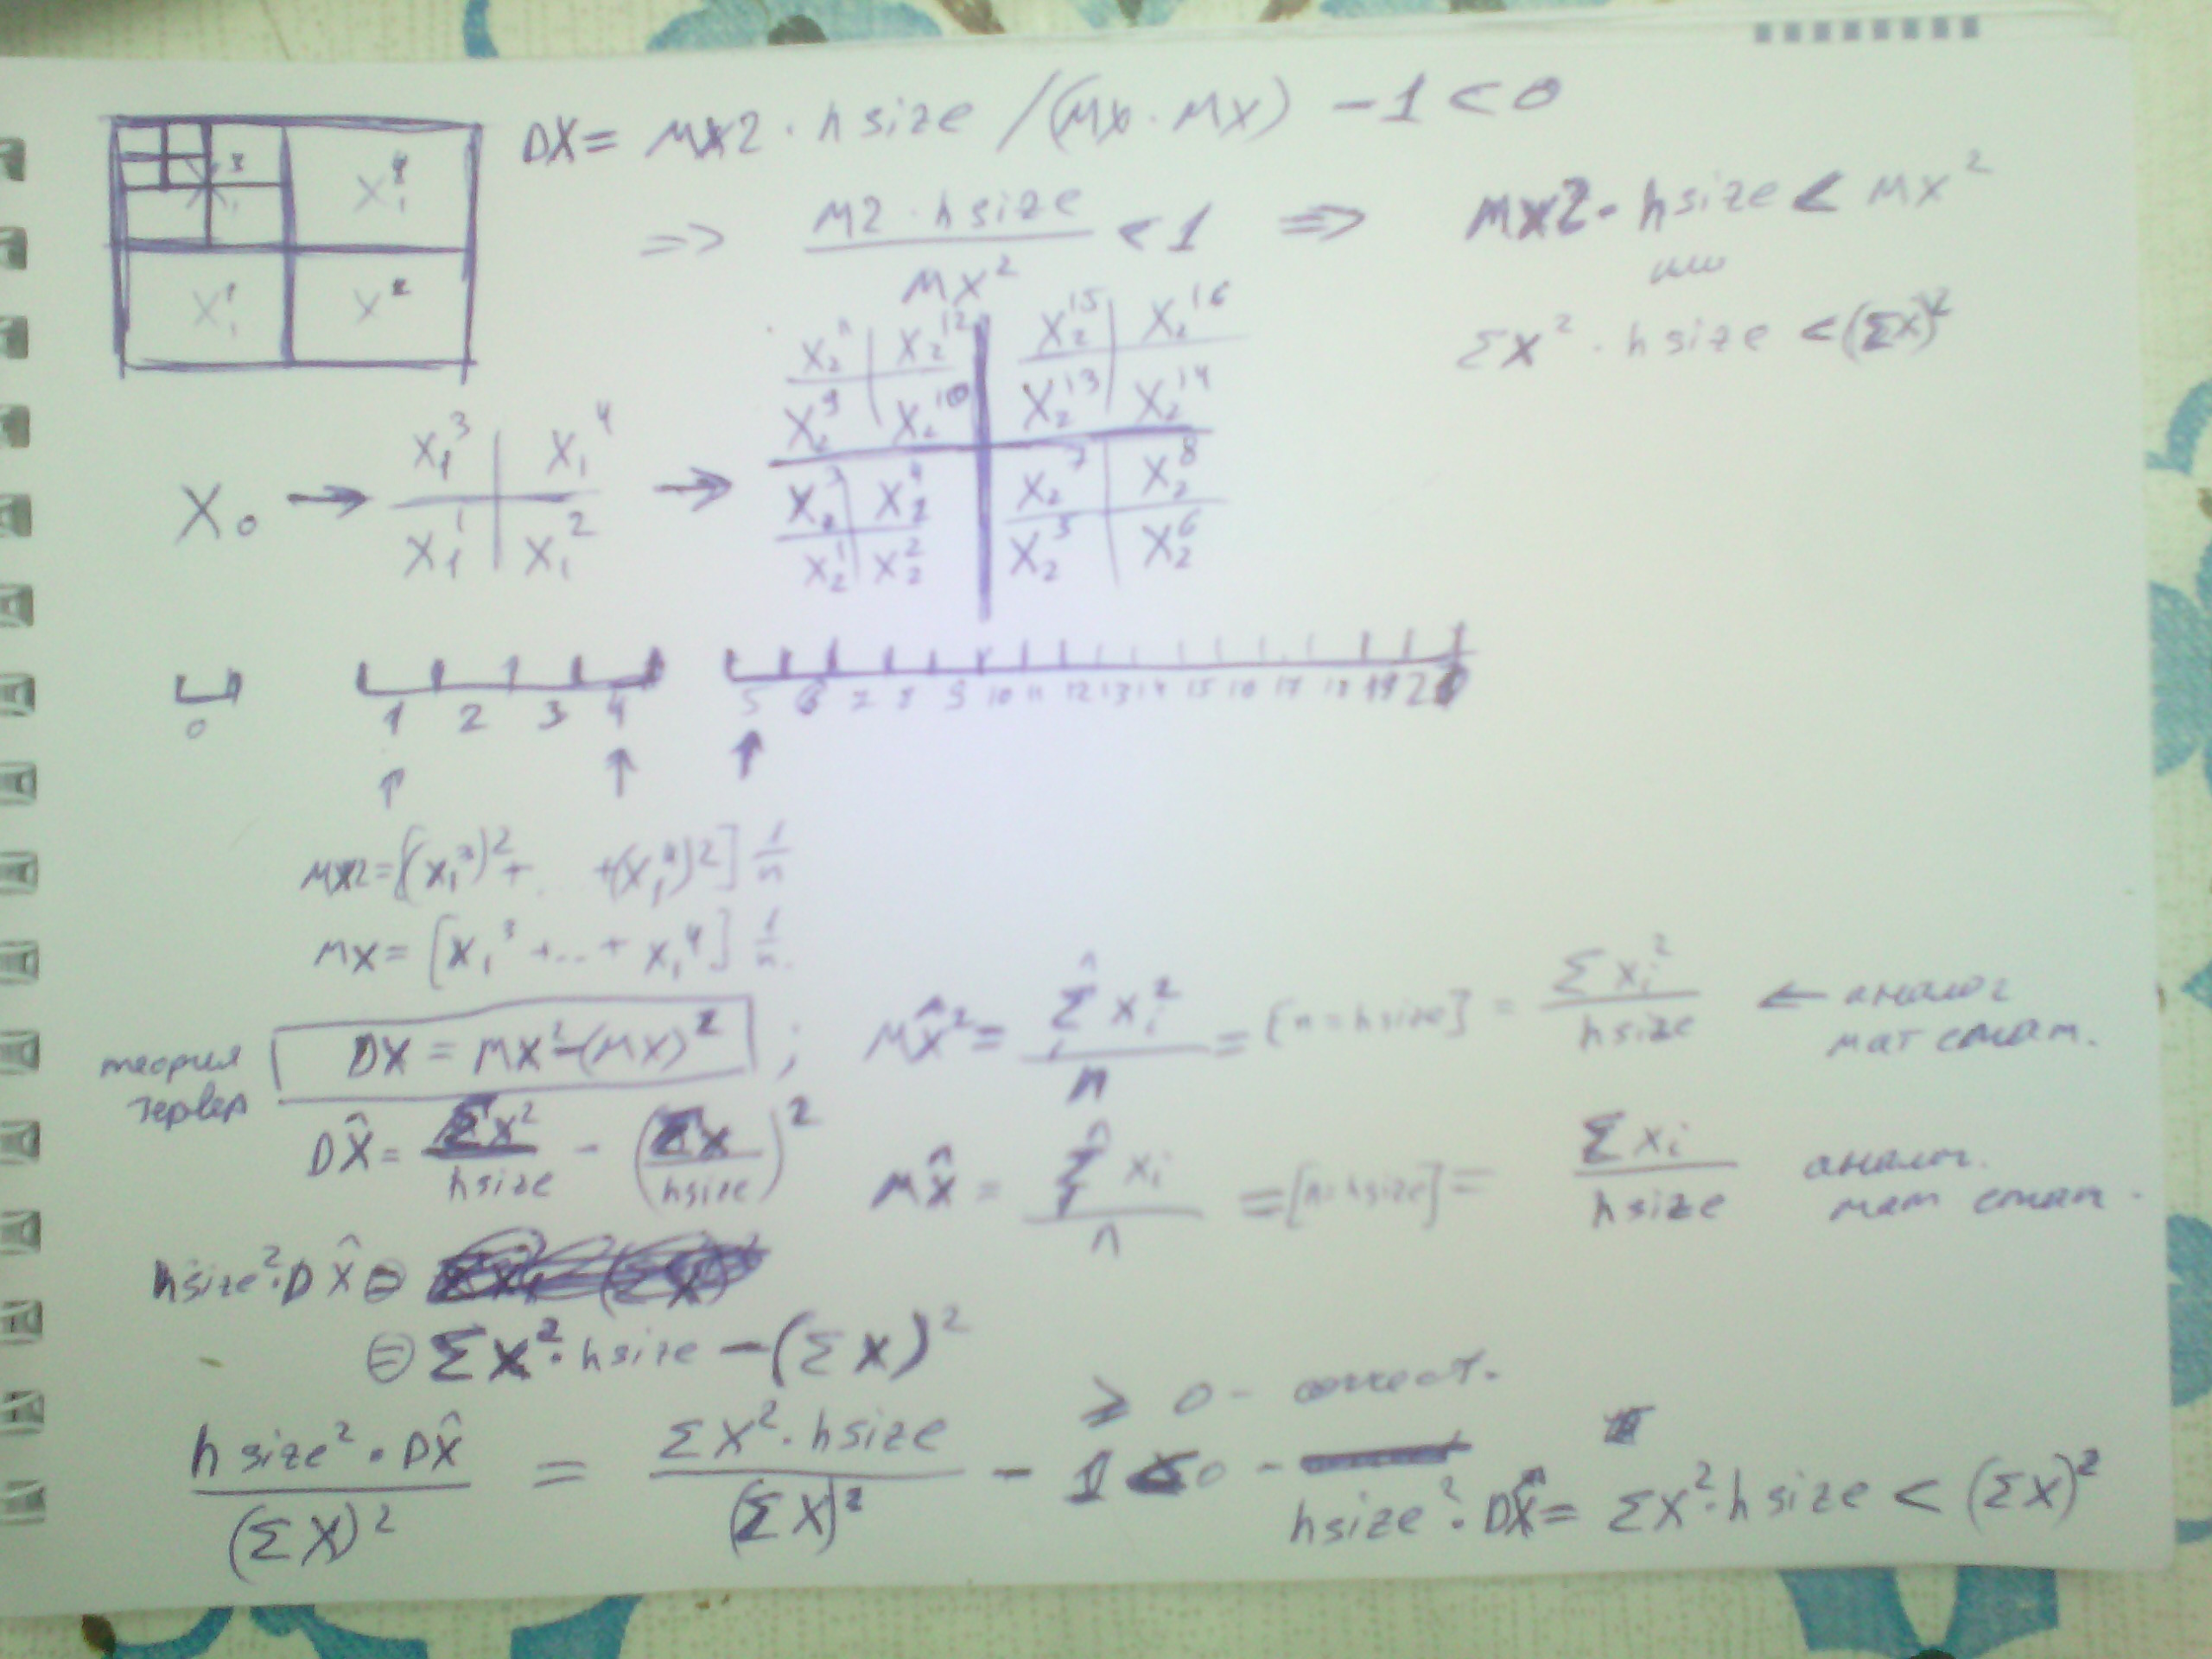 DX = MX2 · hsize / (MX · MX) - 1 < 0
X₁³ X₁⁴
X₁¹ X²
=> M2 · hsize / MX² < 1 => MX2 · hsize < MX²
ΣX² · hsize < (ΣX)²
X₀ → X₁³ X₁⁴ →
X₁¹ X₁²
X₂¹¹ X₂¹² X₂¹⁵ X₂¹⁶
X₂⁹ X₂¹⁰ X₂¹³ X₂¹⁴
X₂³ X₂⁴ X₂⁷ X₂⁸
X₂¹ X₂² X₂⁵ X₂⁶
0 1 2 3 4 5 6 7 8 9 10 11 12 13 14 15 16 17 18 19 20
↑ ↑ ↑
MX2 = [(X₁³)² + ... + (X₁⁴)²] 1/n
MX = [X₁³ + ... + X₁⁴] 1/n.
теория
тервер
DX = MX² - (MX)² ; MX̂² = Σⁿ xᵢ² / n = [n = hsize] = Σxᵢ² / hsize ← аналог
мат стат.
DX̂ = ΣX² / hsize - (ΣX / hsize)²
MX̂ = Σⁿ xᵢ / n = [n = hsize] = Σxᵢ / hsize аналог.
мат стат.
hsize² · DX̂ ⊜
⊜ ΣX² · hsize - (ΣX)²
≥ 0 - correct.
hsize² · DX̂ / (ΣX)² = ΣX² · hsize / (ΣX)² - 1 < 0 -
hsize² · DX̂ = ΣX² · hsize < (ΣX)²